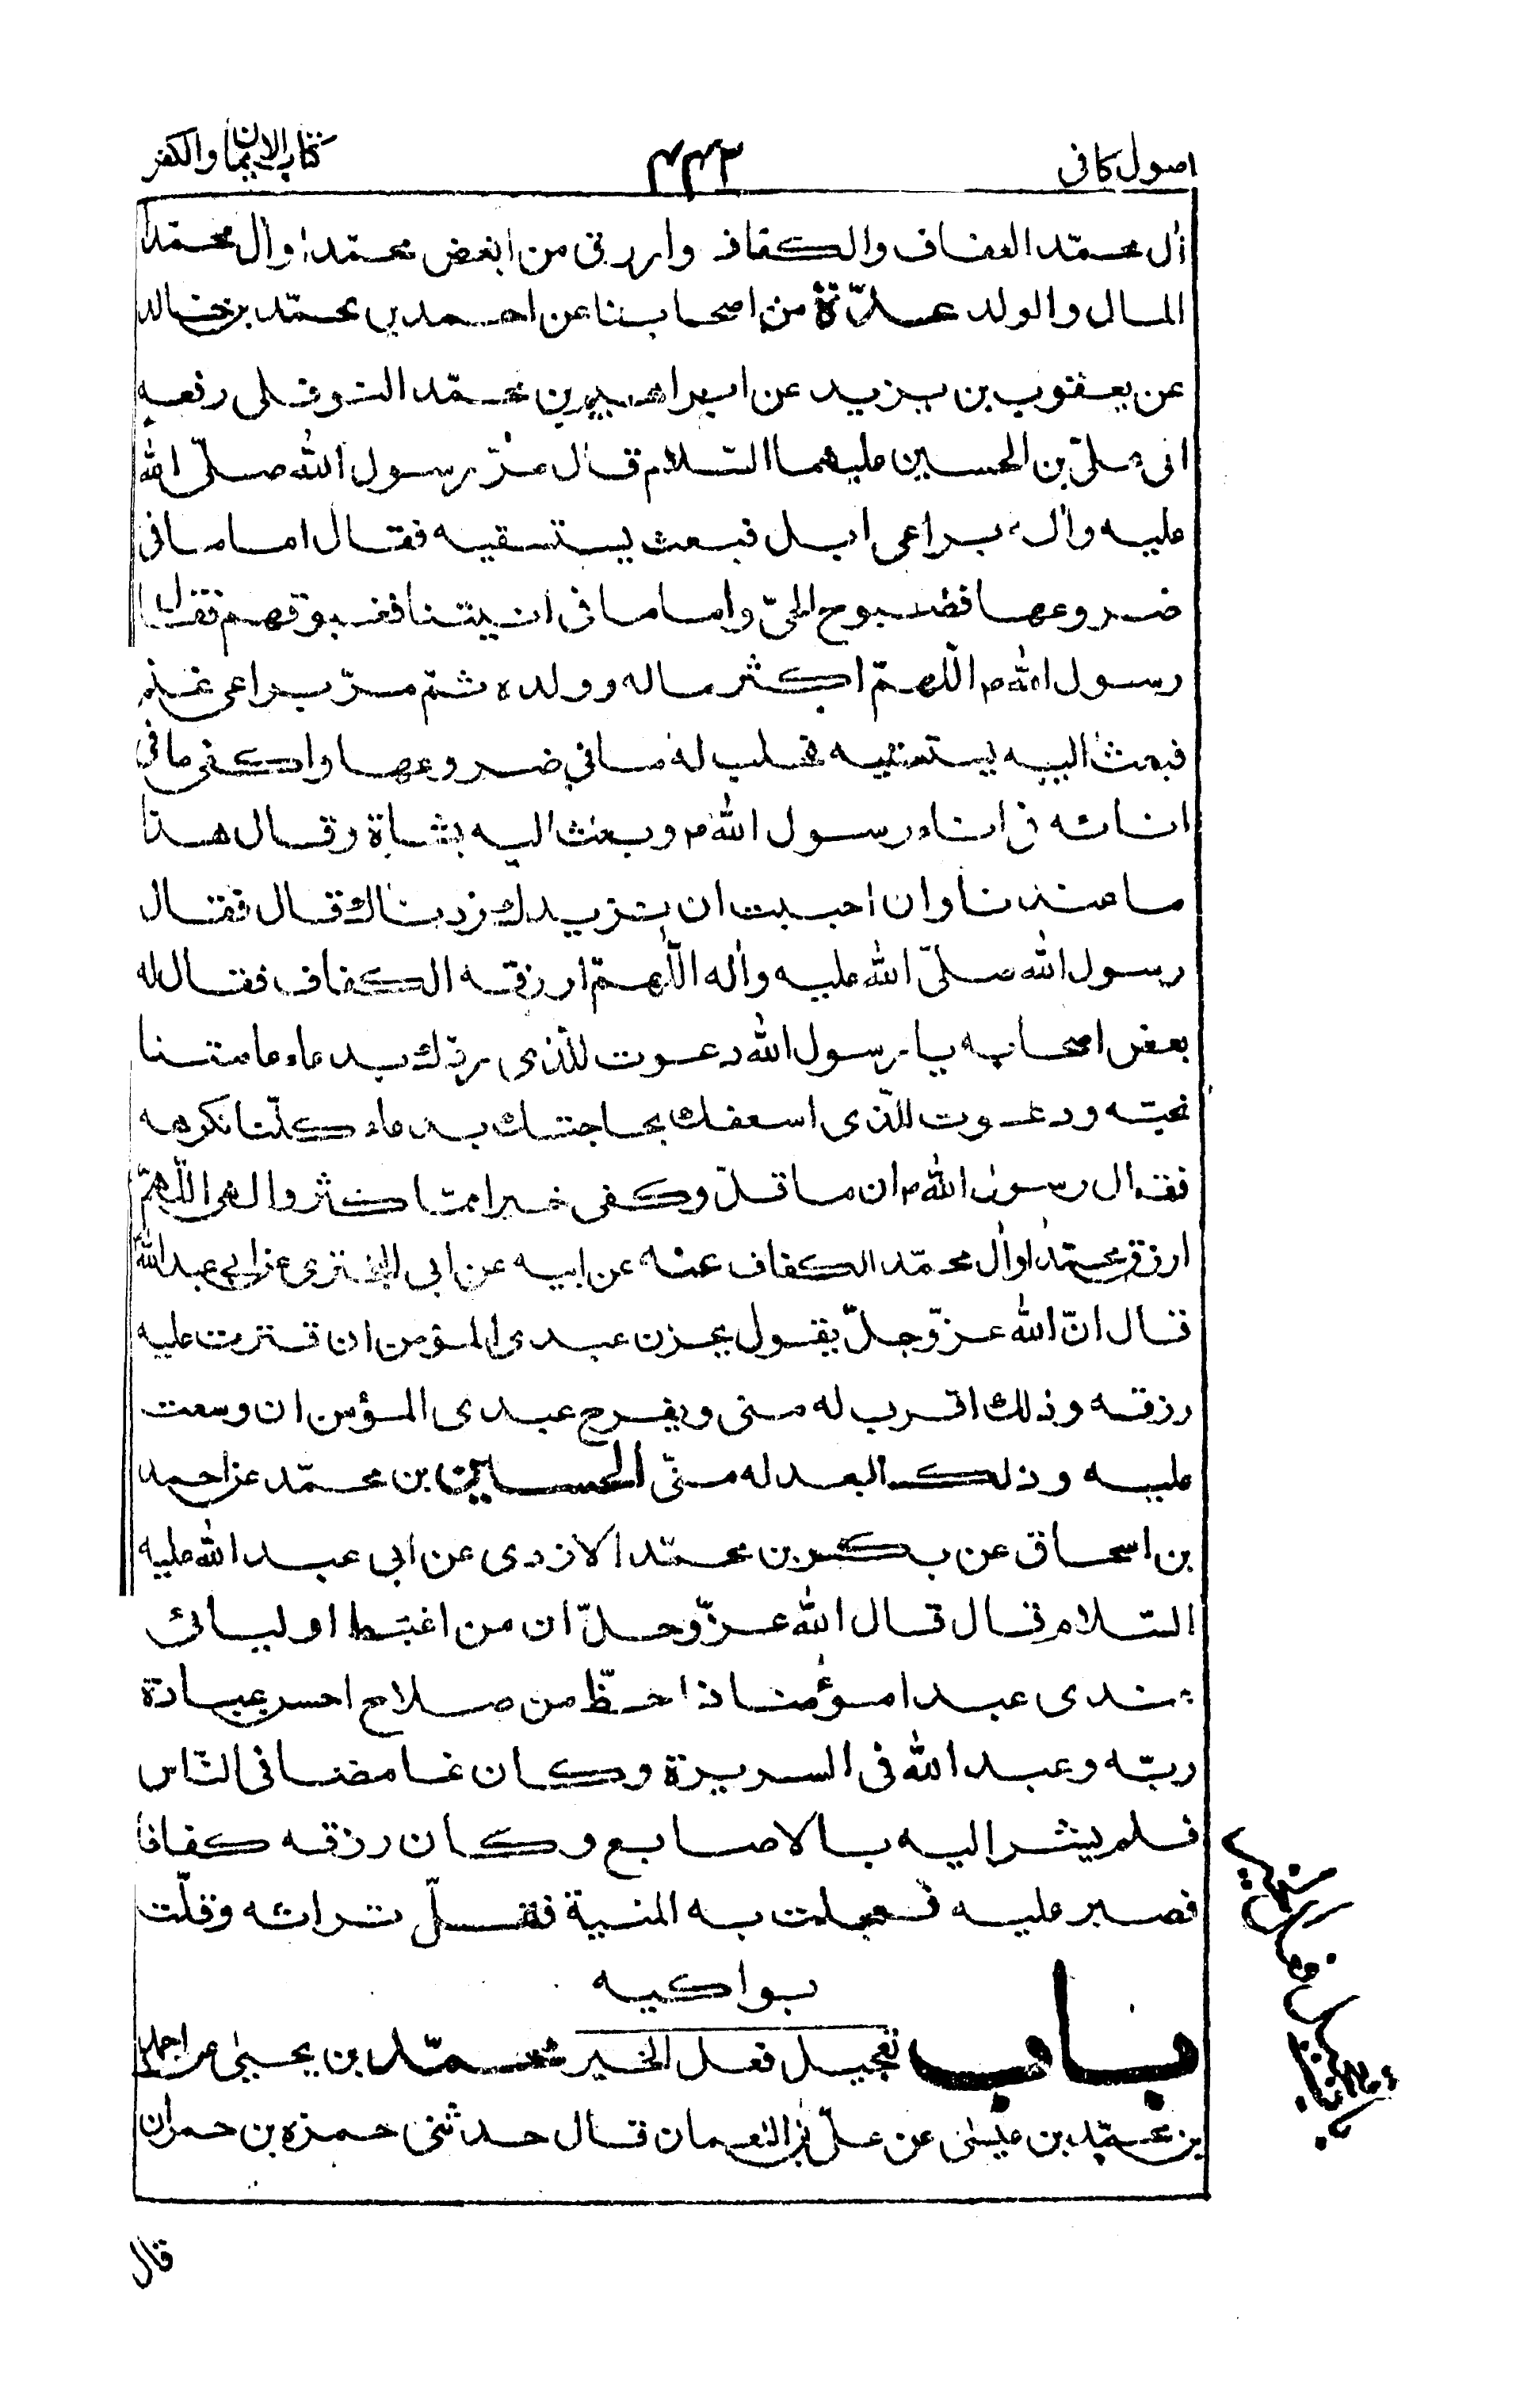 اصول كافى
۴۴۳
كتاب الايمان والكفر
آل محمّد العفاف والكفاف وارزق من ابغض محمّدا وآل محمّد
المال والولد عدّة من اصحابنا عن احمد بن محمّد بن خالد
عن يعقوب بن يزيد عن ابراهيم بن محمّد النوفلى رفعه
الى علىّ بن الحسين عليهما السّلام قال مرّ رسول الله صلّى الله
عليه وآله براعى ابل فبعث يستسقيه فقال اما ما فى
ضروعها فصبوح الحىّ واما ما فى انيتنا فغبوقهم فقال
رسول الله ص اللّهمّ اكثر ماله وولده ثمّ مرّ براعى غنم
فبعث اليه يستسقيه فحلب له ما فى ضروعها واكفى ما فى
انائه فى اناء رسول الله ص وبعث اليه بشاة وقال هذا
ما عندنا وان احببت ان نزيدك زدناك قال فقال
رسول الله صلّى الله عليه وآله اللّهمّ ارزقه الكفاف فقال له
بعض اصحابه يا رسول الله دعوت للّذى ردّك بدعاء عامتنا
نحبّه ودعوت للّذى اسعفك بحاجتك بدعاء كلّنا نكرهه
فقال رسول الله ص ان ما قلّ وكفى خير ممّا كثر والهى اللّهمّ
ارزق محمّدا وآل محمّد الكفاف عنه عن ابيه عن ابى البخترى عن ابى عبد الله
قال انّ الله عزّ وجلّ يقول يحزن عبدى المؤمن ان قترت عليه
رزقه وذلك اقرب له منى ويفرح عبدى المؤمن ان وسعت
عليه وذلك ابعد له منّى الحسين بن محمّد عن احمد
بن اسحاق عن بكر بن محمّد الازدى عن ابى عبد الله عليه
السّلام قال قال الله عزّ وجلّ ان من اغبط اوليائى
عندى عبدا مؤمنا ذا حظّ من صلاح احسن عبادة
ربّه وعبد الله فى السريرة وكان غامضا فى النّاس
فلم يشر اليه بالاصابع وكان رزقه كفافا
فصبر عليه فعجلت به المنية فقلّ تراثه وقلّت
بواكيه
باب تعجيل فعل الخير محمّد بن يحيى عن احمد
بن محمّد بن عيسى عن علىّ بن النعمان قال حدثنى حمزه بن حمران
قال